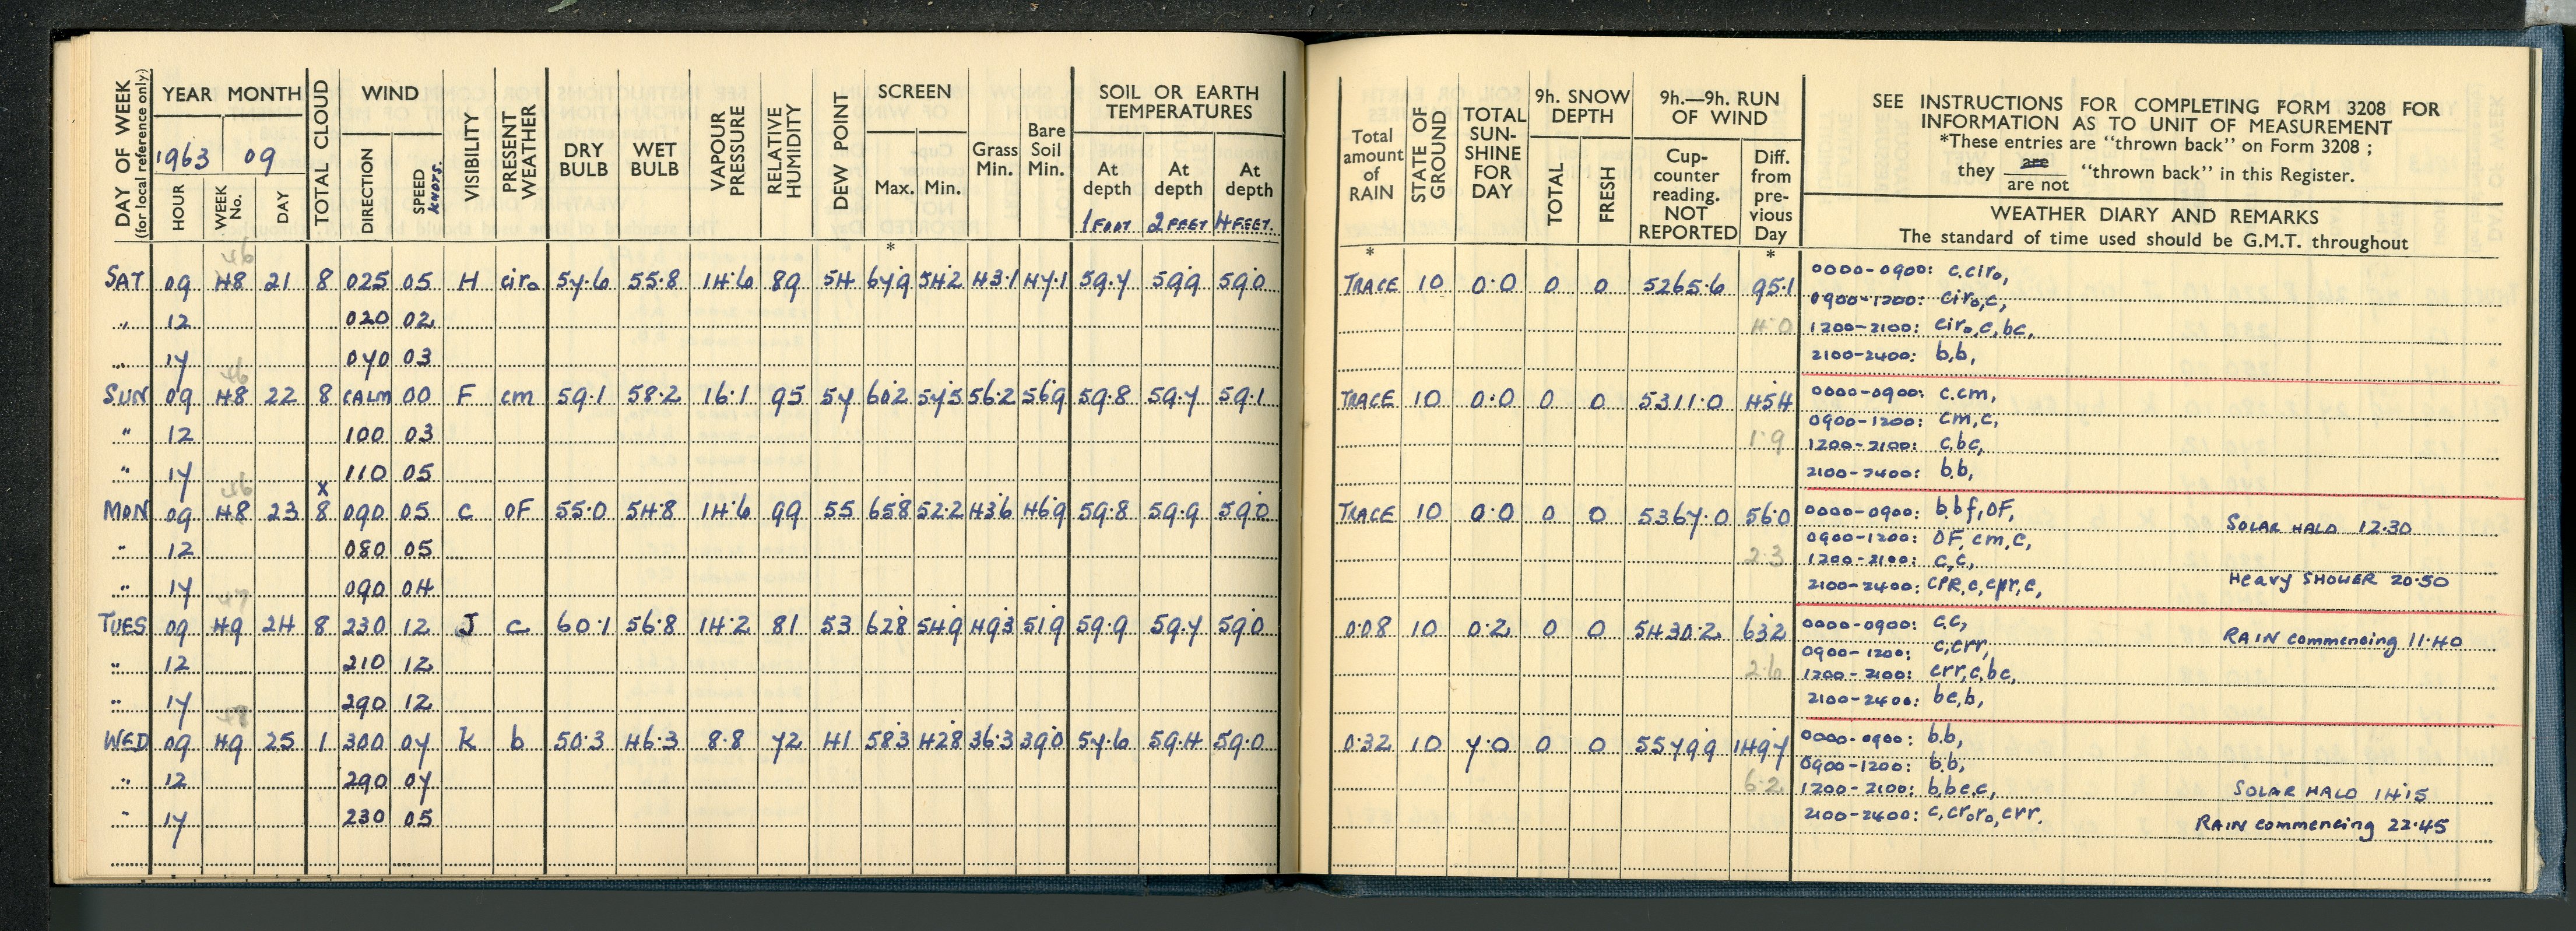 DAY OF WEEK
(for local reference only)
YEAR MONTH
1963 09
HOUR
WEEK No.
DAY
TOTAL CLOUD
WIND
DIRECTION
SPEED KNOTS.
VISIBILITY
PRESENT WEATHER
DRY BULB
WET BULB
VAPOUR PRESSURE
RELATIVE HUMIDITY
DEW POINT
SCREEN
Max. Min.
*
Grass Min.
Bare Soil Min.
SOIL OR EARTH TEMPERATURES
At depth At depth At depth
1 FOOT 2 FEET 4 FEET.
SAT 09 48 21 8 025 05 H cir₀ 57.6 55.8 14.6 89 54 67.9 54.2 43.1 47.1 59.7 59.9 59.0
" 12 020 02
" 17 070 03
SUN 09 48 22 8 CALM 00 F cm 59.1 58.2 16.1 95 57 60.2 57.5 56.2 56.9 59.8 59.7 59.1
" 12 100 03
" 17 110 05
x
MON 09 48 23 8 090 05 C OF 55.0 54.8 14.6 99 55 65.8 52.2 43.6 46.9 59.8 59.9 59.0
" 12 080 05
" 17 090 04
TUES 09 49 24 8 230 12 J c 60.1 56.8 14.2 81 53 62.8 54.9 49.3 51.9 59.9 59.7 59.0
" 12 210 12
" 17 290 12
WED 09 49 25 1 300 07 K b 50.3 46.3 8.8 72 41 58.3 42.8 36.3 39.0 57.6 59.4 59.0
" 12 290 07
" 17 230 05
Total amount of RAIN
*
STATE OF GROUND
TOTAL SUN-SHINE FOR DAY
9h. SNOW DEPTH
TOTAL
FRESH
9h.—9h. RUN OF WIND
Cup-counter reading. NOT REPORTED
Diff. from pre-vious Day
*
SEE INSTRUCTIONS FOR COMPLETING FORM 3208 FOR
INFORMATION AS TO UNIT OF MEASUREMENT
*These entries are "thrown back" on Form 3208 ;
they are / are not "thrown back" in this Register.
WEATHER DIARY AND REMARKS
The standard of time used should be G.M.T. throughout
TRACE 10 0.0 0 0 5265.6 95.1
4.0
0000-0900: c.cir₀,
0900-1200: cir₀,c,
1200-2100: cir₀,c,bc,
2100-2400: b,b,
TRACE 10 0.0 0 0 5311.0 45.4
1.9
0000-0900: c.cm,
0900-1200: cm,c,
1200-2100: c,bc,
2100-2400: b,b,
TRACE 10 0.0 0 0 5367.0 56.0
2.3
0000-0900: b,bf,OF,
SOLAR HALO 12.30
0900-1200: OF, cm,c,
1200-2100: c,c,
2100-2400: CPR,c,cpr,c,
HEAVY SHOWER 20.50
0.08 10 0.2 0 0 5430.2 63.2
2.6
0000-0900: c,c,
RAIN commencing 11.40
0900-1200: c,crr,
1200-2100: crr,c,bc,
2100-2400: bc,b,
0.32 10 7.0 0 0 5579.9 149.7
6.2
0000-0900: b,b,
0900-1200: b,b,
1200-2100: b,bc,c,
SOLAR HALO 14.15
2100-2400: c,cr₀r₀,crr,
RAIN commencing 22.45